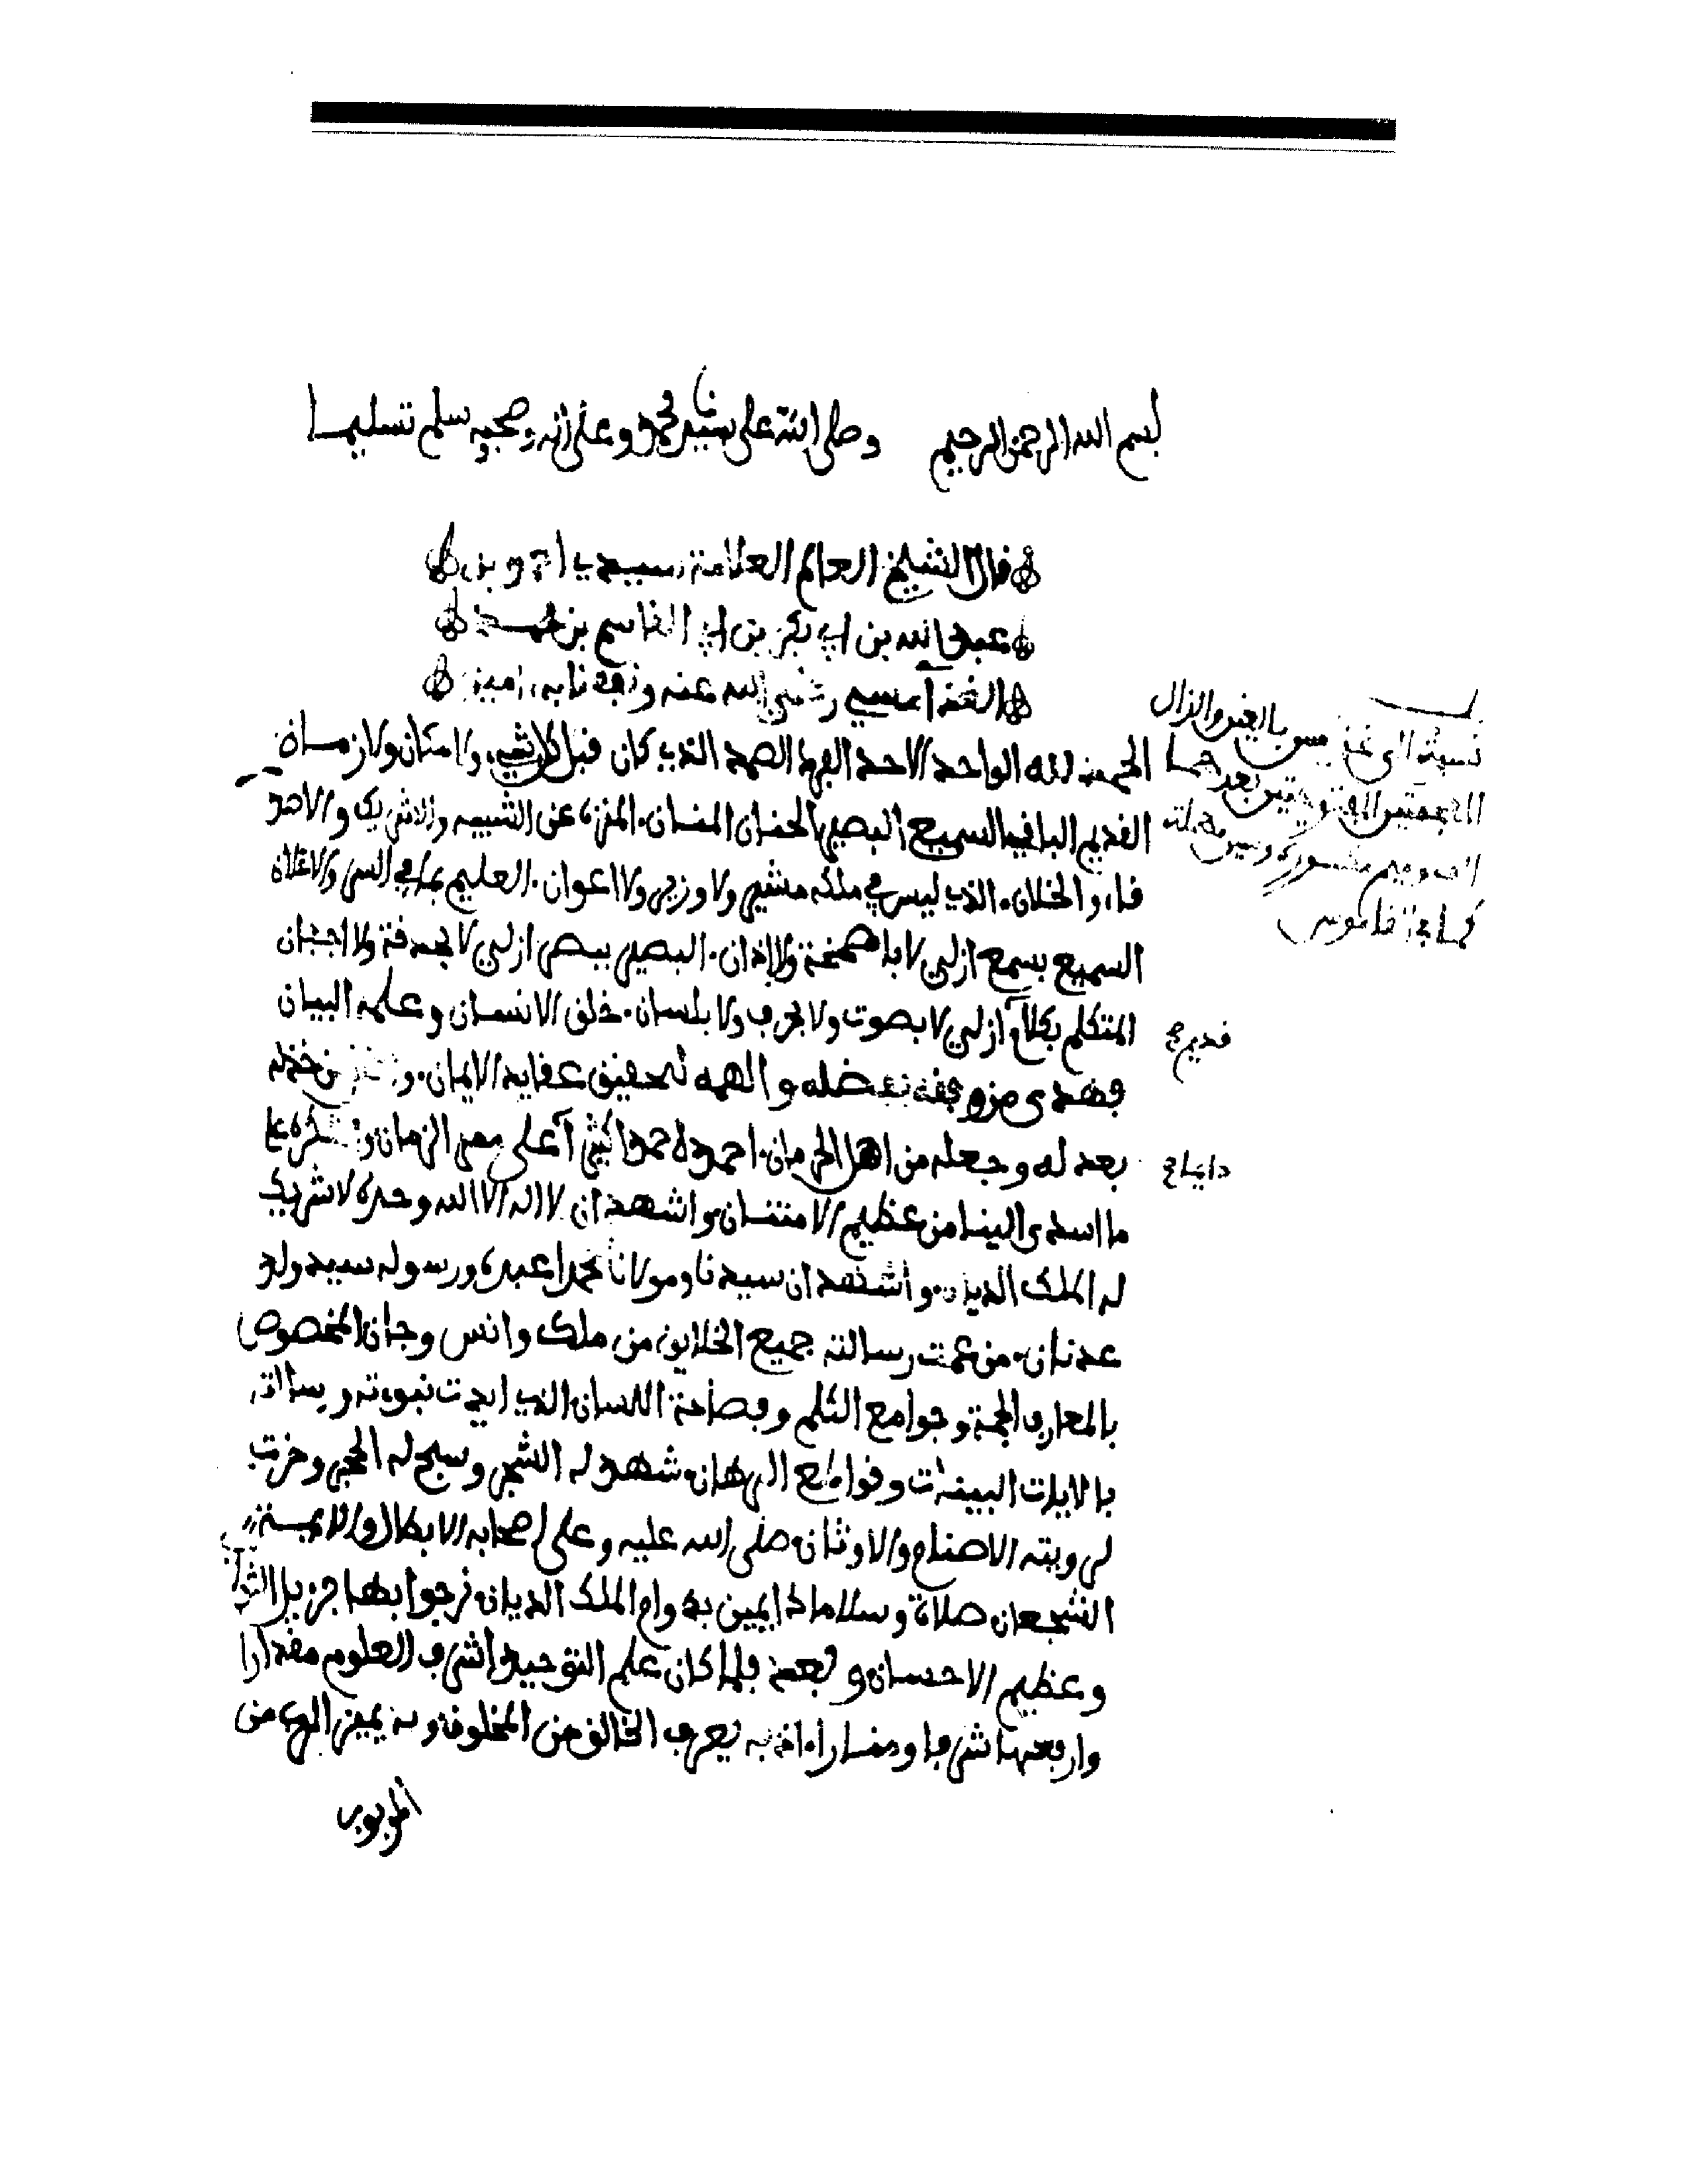 بسم الله الرحمن الرحيم وصلى الله على سيدنا محمد وعلى اله وصحبه وسلم تسليما
قال الشيخ العالم العلامة سيدي احمد بن
عبد الله بن ابي بكر بن ابي القاسم بن محمد
الغدامسي رضي الله عنه ونفعنا به امين
الحمد لله الواحد الاحد الفرد الصمد الذي كان قبل كل شيء ولا مكان ولا زمان
القديم الباقي السميع البصير الحنان المنان. المنزه عن الشبيه والشريك والاصد
قاء والخلان. الذي ليس في ملكه مشير ولا وزير ولا اعوان. العليم بما في السر والاعلان
السميع بسمع ازلي لا باصمخة ولا اذان. البصير ببصر ازلي لا بحدقة ولا اجفان
المتكلم بكلام ازلي لا بصوت ولا بحرف ولا بلسان. خلق الانسان وعلمه البيان
فهدى من وفقه بفضله والهمه لتحقيق عقايد الايمان. من خذله
بعدله وجعله من اهل الحرمان. احمده حمدا كثيرا على ممر الزمان ونشكره على
ما اسدى الينا من عظيم الامتنان واشهد ان لا اله الا الله وحده لا شريك
له الملك الديان. واشهد ان سيدنا ومولانا محمدا عبده ورسوله سيد ولد
عدنان. من عمت رسالته جميع الخلايق من ملك وانس وجان المخصوص
بالمعارف الجمة وجوامع الكلم وفصاحة اللسان الذي ايدت نبوءته ورسالته
بالايات البينات وقواطع البرهان شهد له الشجر وسبح له الحجر وخرت
لرويته الاصنام والاوثان صلى الله عليه وعلى اصحابه الابطال والايمة
الشجعان صلاة وسلاما دايمين بدوام الملك الديان نرجوا بهما جزيل الثواب
وعظيم الاحسان وبعد فلما كان علم التوحيد اشرف العلوم مقدارا
وارفعها شرفا ومنارا. اذ به يعرف الخالق من المخلوق وبه يميز الرب من
المربوب
نسبة الى غدامس بالغين والذال
المعجمتين المفتوحتين بعدهما
الف وميم مكسورة وسين مهملة
كما في القاموس
قديم